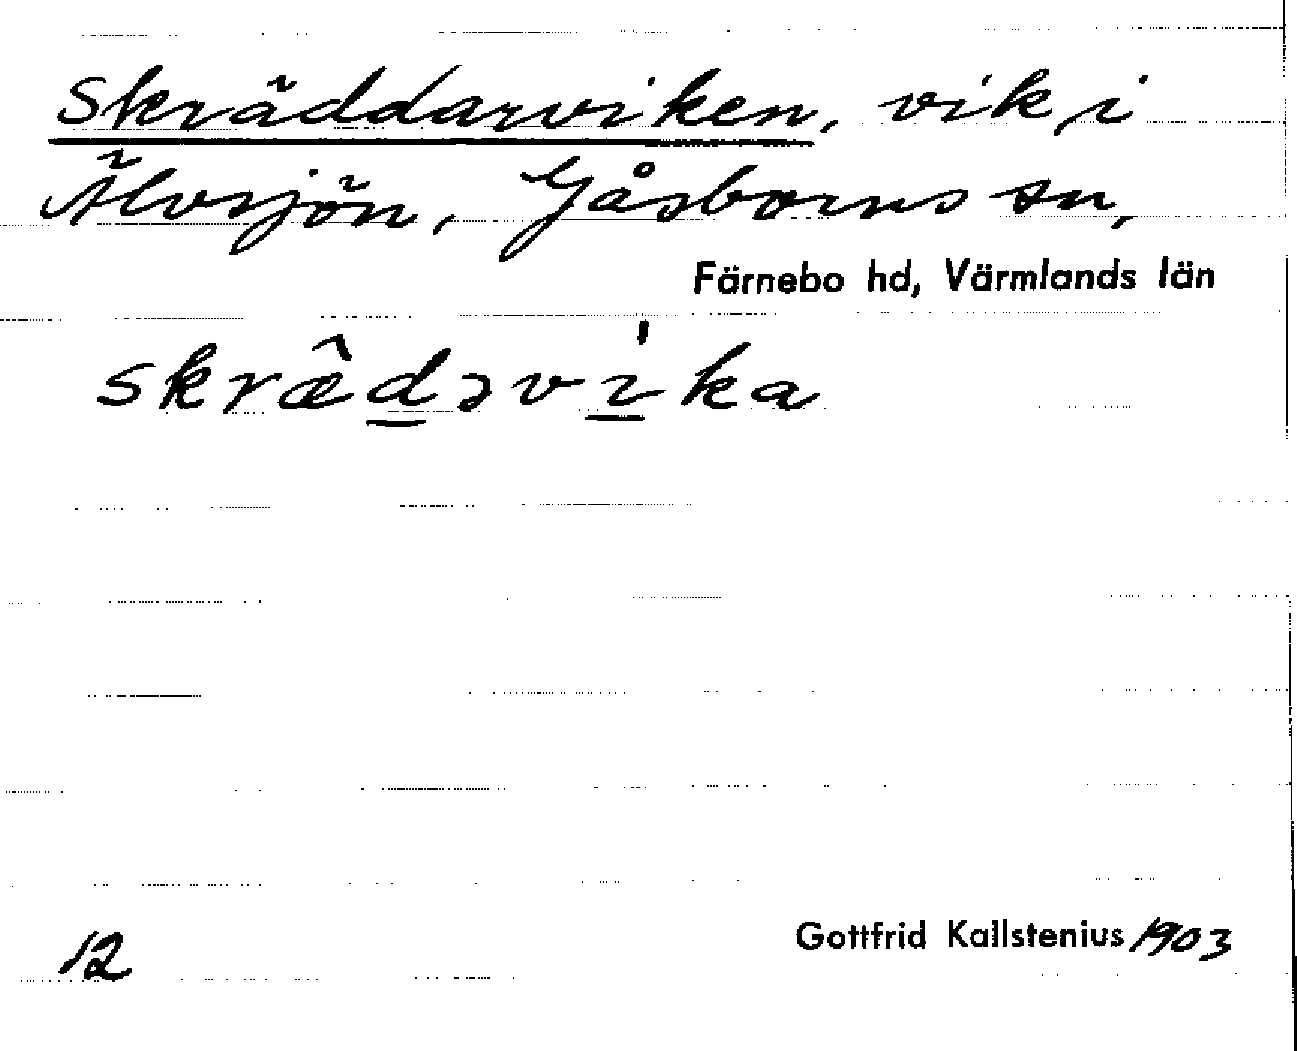 Skräddarviken, vik i
Älvsjön, Gåsborns sn,
Färnebo hd, Värmlands län
skræ̂d̲əvi̲̍ka
12
Gottfrid Kallstenius 1903